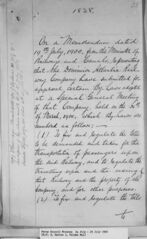 1828.
On a Memorandum dated
19th July, 1900, from the Minister of
Railways and Canals, representing
that the Dominion Atlantic Rail-
way Company have submitted for
approval certain By Laws adopted
at a Special General Meeting
of that Company, held on the
March, 1900, which By laws are
numbered as follow;—
(1) To fix and regulate the tolls
to be demanded and taken for the
transportation of passengers upon
the said Railway, and to regulate the
travelling upon and the
of that Railway and the property of the
Company, and for other purposes.
(2) To fix and regulate the tolls